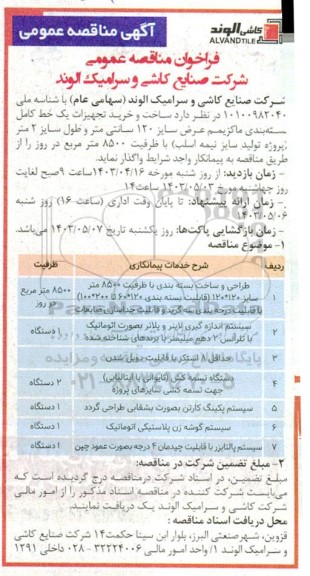 کاشی الوند
ALVANDTILE
آگهی مناقصه عمومی
فراخوان مناقصه عمومی
شرکت صنایع کاشی و سرامیک الوند
شرکت صنایع کاشی و سرامیک الوند (سهامی عام) با شناسه ملی
۱۰۱۰۰۹۸۲۰۴۰ در نظر دارد ساخت و خرید تجهیزات یک خط کامل
بسته‌بندی ماکزیمم عرض سایز ۱۲۰ سانتی متر و طول سایز ۲ متر
(پروژه تولید سایز نیمه اسلب) با ظرفیت ۸۵۰۰ متر مربع در روز را از
طریق مناقصه به پیمانکار واجد شرایط واگذار نماید.
- زمان بازدید: از روز شنبه مورخه ۱۴۰۳/۰۴/۱۶ ساعت ۹ صبح لغایت
روز چهارشنبه مورخ ۱۴۰۳/۰۵/۰۳ ساعت ۱۴
- زمان ارائه پیشنهاد: تا پایان وقت اداری (ساعت ۱۶) روز شنبه
۱۴۰۳/۰۵/۰۶
- زمان بازگشایی پاکت‌ها: روز یکشنبه تاریخ ۱۴۰۳/۰۵/۰۷ می‌باشد.
۱- موضوع مناقصه
ردیف شرح خدمات پیمانکاری ظرفیت
۱ طراحی و ساخت بسته بندی با ظرفیت ۸۵۰۰ متر
سایز ۱۲۰*۱۲۰ (قابلیت بسته بندی ۱۲۰*۶۰ تا ۲۰۰*۱۰۰)
با قابلیت درجه بندی سه گرید و قابلیت جداسازی ضایعات
۸۵۰۰ متر مربع در روز
۲ سیستم اندازه گیری لاینر و پلانر بصورت اتوماتیک
با تلرانس ۲ دهم میلیمتر با برندهای شناخته شده ۱ دستگاه
۳ حداقل ۸ استکر با قابلیت دوبل شدن
۴ دستگاه تسمه کش (تایوانی یا ایتالیایی)
جهت تسمه کشی سایزهای پروژه ۲ دستگاه
۵ سیستم پکینگ کارتن بصورت بشقابی طراحی گردد ۱ دستگاه
۶ سیستم گوشه زن پلاستیکی اتوماتیک ۱ دستگاه
۷ سیستم پالتایزر با قابلیت چیدمان ۴ درجه بصورت عمود چین ۱ دستگاه
۲- مبلغ تضمین شرکت در مناقصه:
مبلغ تضمین، در اسناد شرکت در مناقصه درج گردیده است که
می‌بایست شرکت کننده در مناقصه اسناد مذکور را از امور مالی
شرکت کاشی و سرامیک الوند یک دریافت نمایند.
محل دریافت اسناد مناقصه:
قزوین، شهر صنعتی البرز، بلوار ابن سینا حکمت ۱۴ شرکت صنایع کاشی
و سرامیک الوند ۱/ واحد امور مالی ۳۲۲۲۴۰۰۶ - ۰۲۸ داخلی ۱۲۹۱